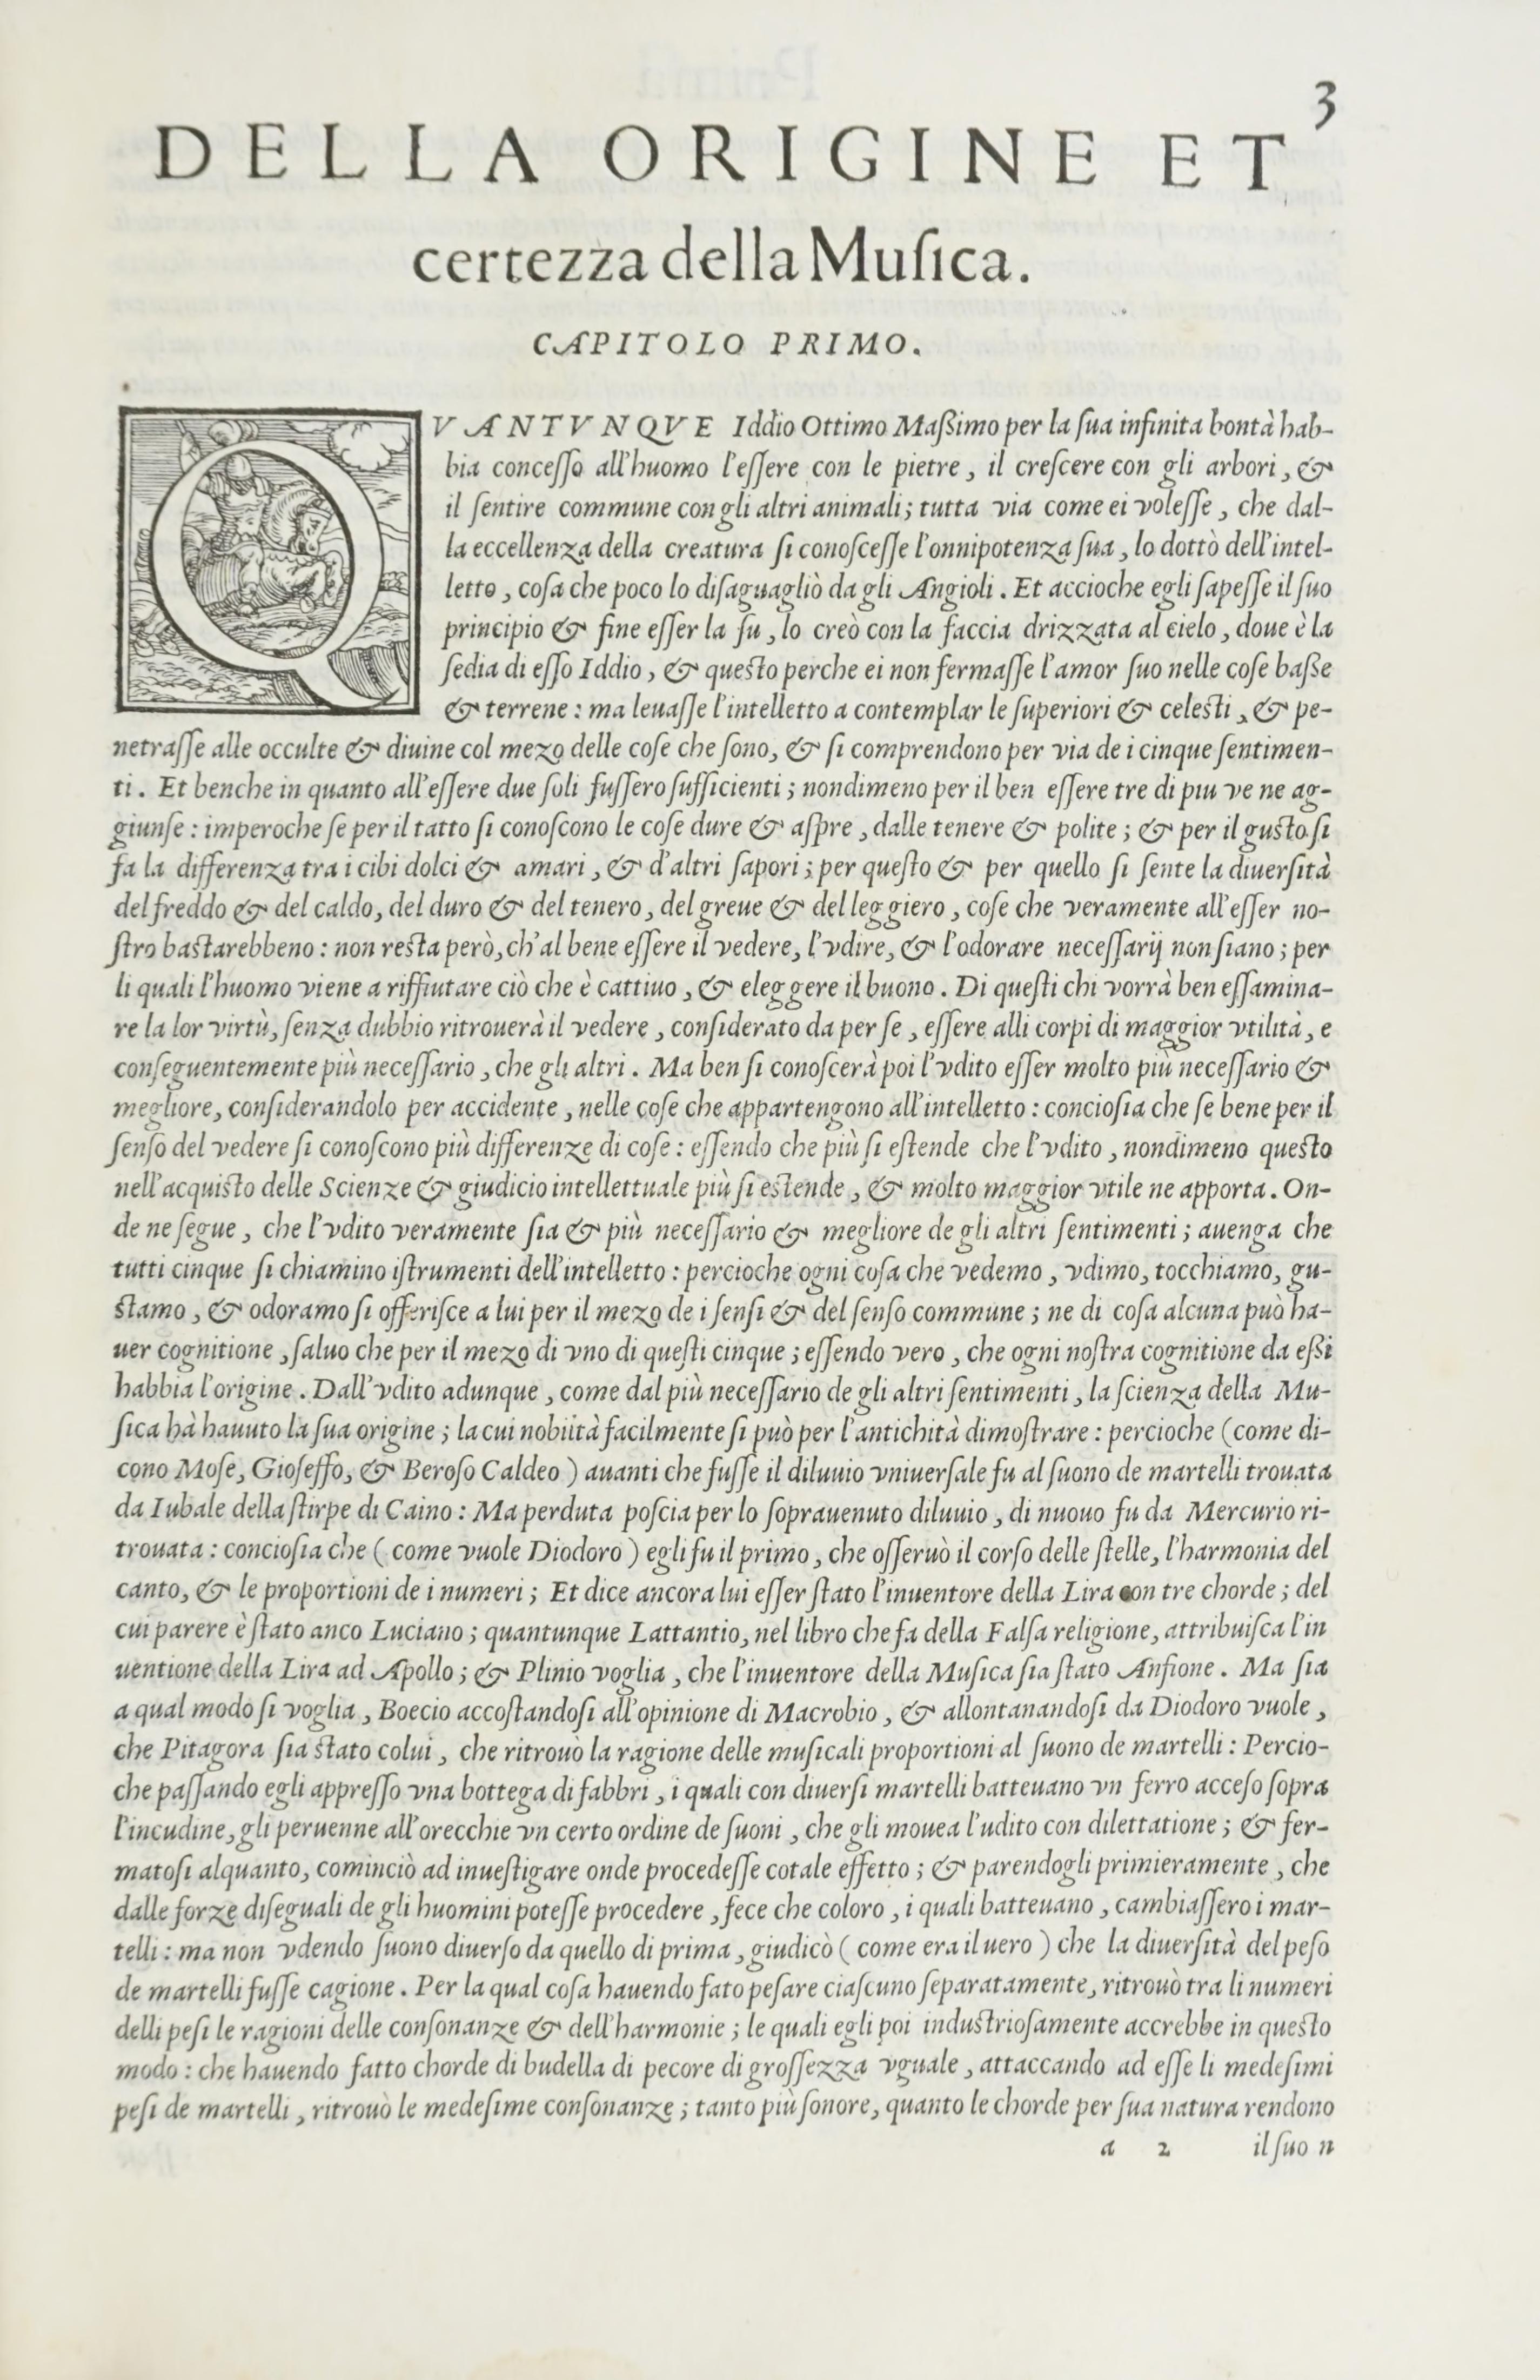 3
DELLA ORIGINE ET
certezza della Muſica.
CAPITOLO PRIMO.
QVANTVNQVE Iddio Ottimo Maßimo per la ſua infinita bontà hab-
bia conceſſo all'huomo l'eſſere con le pietre, il creſcere con gli arbori, &
il ſentire commune con gli altri animali; tutta via come ei voleſſe, che dal-
la eccellenza della creatura ſi conoſceſſe l'onnipotenza ſua, lo dottò dell'intel-
letto, coſa che poco lo diſaguagliò da gli Angioli. Et accioche egli ſapeſſe il ſuo
principio & fine eſſer la ſu, lo creò con la faccia drizzata al cielo, doue è la
ſedia di eſſo Iddio, & queſto perche ei non fermaſſe l'amor ſuo nelle coſe baße
& terrene: ma leuaſſe l'intelletto a contemplar le ſuperiori & celeſti, & pe-
netraſſe alle occulte & diuine col mezo delle coſe che ſono, & ſi comprendono per via de i cinque ſentimen-
ti. Et benche in quanto all'eſſere due ſoli fuſſero ſufficienti; nondimeno per il ben eſſere tre di piu ve ne ag-
giunſe: imperoche ſe per il tatto ſi conoſcono le coſe dure & aſpre, dalle tenere & polite; & per il guſto ſi
fa la differenza tra i cibi dolci & amari, & d'altri ſapori; per queſto & per quello ſi ſente la diuerſità
del freddo & del caldo, del duro & del tenero, del greue & del leggiero, coſe che veramente all'eſſer no-
ſtro baſtarebbeno: non reſta però, ch'al bene eſſere il vedere, l'vdire, & l'odorare neceſſarij non ſiano; per
li quali l'huomo viene a riffiutare ciò che è cattiuo, & eleggere il buono. Di queſti chi vorrà ben eſſamina-
re la lor virtù, ſenza dubbio ritrouerà il vedere, conſiderato da per ſe, eſſere alli corpi di maggior vtilità, e
conſeguentemente più neceſſario, che gli altri. Ma ben ſi conoſcerà poi l'vdito eſſer molto più neceſſario &
megliore, conſiderandolo per accidente, nelle coſe che appartengono all'intelletto: concioſia che ſe bene per il
ſenſo del vedere ſi conoſcono più differenze di coſe: eſſendo che più ſi eſtende che l'vdito, nondimeno queſto
nell'acquiſto delle Scienze & giudicio intellettuale più ſi eſtende, & molto maggior vtile ne apporta. On-
de ne ſegue, che l'vdito veramente ſia & più neceſſario & megliore de gli altri ſentimenti; auenga che
tutti cinque ſi chiamino iſtrumenti dell'intelletto: percioche ogni coſa che vedemo, vdimo, tocchiamo, gu-
ſtamo, & odoramo ſi offeriſce a lui per il mezo de i ſenſi & del ſenſo commune; ne di coſa alcuna può ha-
uer cognitione, ſaluo che per il mezo di vno di queſti cinque; eſſendo vero, che ogni noſtra cognitione da eßi
habbia l'origine. Dall'vdito adunque, come dal più neceſſario de gli altri ſentimenti, la ſcienza della Mu-
ſica hà hauuto la ſua origine; la cui nobiità facilmente ſi può per l'antichità dimoſtrare: percioche (come di-
cono Moſe, Gioſeffo, & Beroſo Caldeo) auanti che fuſſe il diluuio vniuerſale fu al ſuono de martelli trouata
da Iubale della ſtirpe di Caino: Ma perduta poſcia per lo ſoprauenuto diluuio, di nuouo fu da Mercurio ri-
trouata: concioſia che (come vuole Diodoro) egli fu il primo, che oſſeruò il corſo delle ſtelle, l'harmonia del
canto, & le proportioni de i numeri; Et dice ancora lui eſſer ſtato l'inuentore della Lira con tre chorde; del
cui parere è ſtato anco Luciano; quantunque Lattantio, nel libro che fa della Falſa religione, attribuiſca l'in
uentione della Lira ad Apollo; & Plinio voglia, che l'inuentore della Muſica ſia ſtato Anfione. Ma ſia
a qual modo ſi voglia, Boecio accoſtandoſi all'opinione di Macrobio, & allontanandoſi da Diodoro vuole,
che Pitagora ſia ſtato colui, che ritrouò la ragione delle muſicali proportioni al ſuono de martelli: Percio-
che paſſando egli appreſſo vna bottega di fabbri, i quali con diuerſi martelli batteuano vn ferro acceſo ſopra
l'incudine, gli peruenne all'orecchie vn certo ordine de ſuoni, che gli mouea l'udito con dilettatione; & fer-
matoſi alquanto, cominciò ad inueſtigare onde procedeſſe cotale effetto; & parendogli primieramente, che
dalle forze diſeguali de gli huomini poteſſe procedere, fece che coloro, i quali batteuano, cambiaſſero i mar-
telli: ma non vdendo ſuono diuerſo da quello di prima, giudicò (come era il uero) che la diuerſità del peſo
de martelli fuſſe cagione. Per la qual coſa hauendo fato peſare ciaſcuno ſeparatamente, ritrouò tra li numeri
delli peſi le ragioni delle conſonanze & dell'harmonie; le quali egli poi induſtrioſamente accrebbe in queſto
modo: che hauendo fatto chorde di budella di pecore di groſſezza vguale, attaccando ad eſſe li medeſimi
peſi de martelli, ritrouò le medeſime conſonanze; tanto più ſonore, quanto le chorde per ſua natura rendono
a 2 il ſuo n